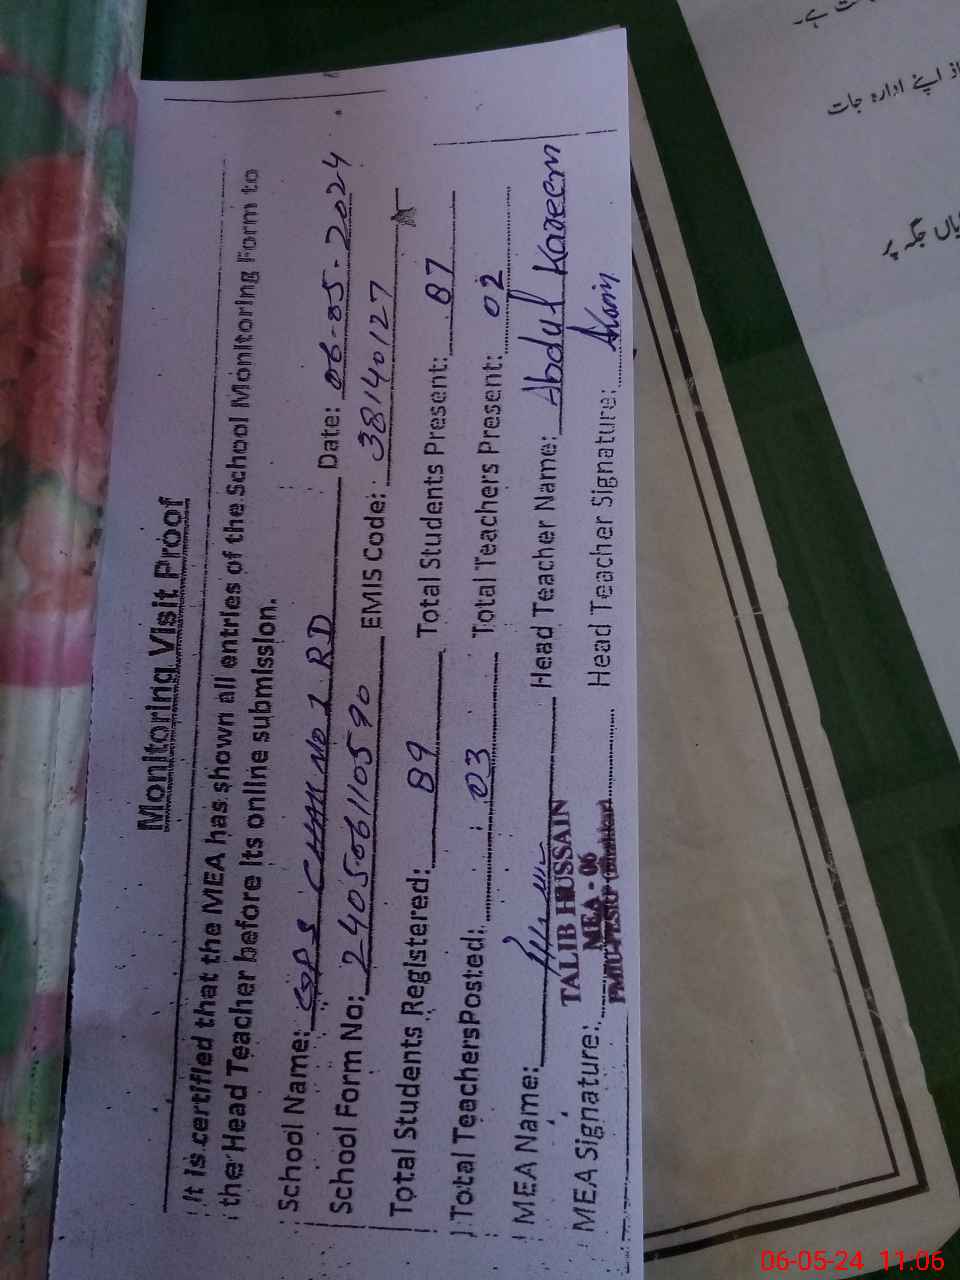 Monitoring Visit Proof
It is certified that the MEA has shown all entries of the School Monitoring Form to
the Head Teacher before its online submission.
School Name: GPS CHAK NO 1 RD Date: 06-05-2024
School Form No: 2405061110590 EMIS Code: 38140127
Total Students Registered: 89 Total Students Present: 87
Total Teachers Posted: 03 Total Teachers Present: 02
MEA Name: Head Teacher Name: Abdul Kareem
TALIB HUSSAIN
MEA - 06
MEA Signature: Head Teacher Signature: AKarim
ہے۔
اپنے ادارہ جات
جگہ پر
06-05-24 11:06